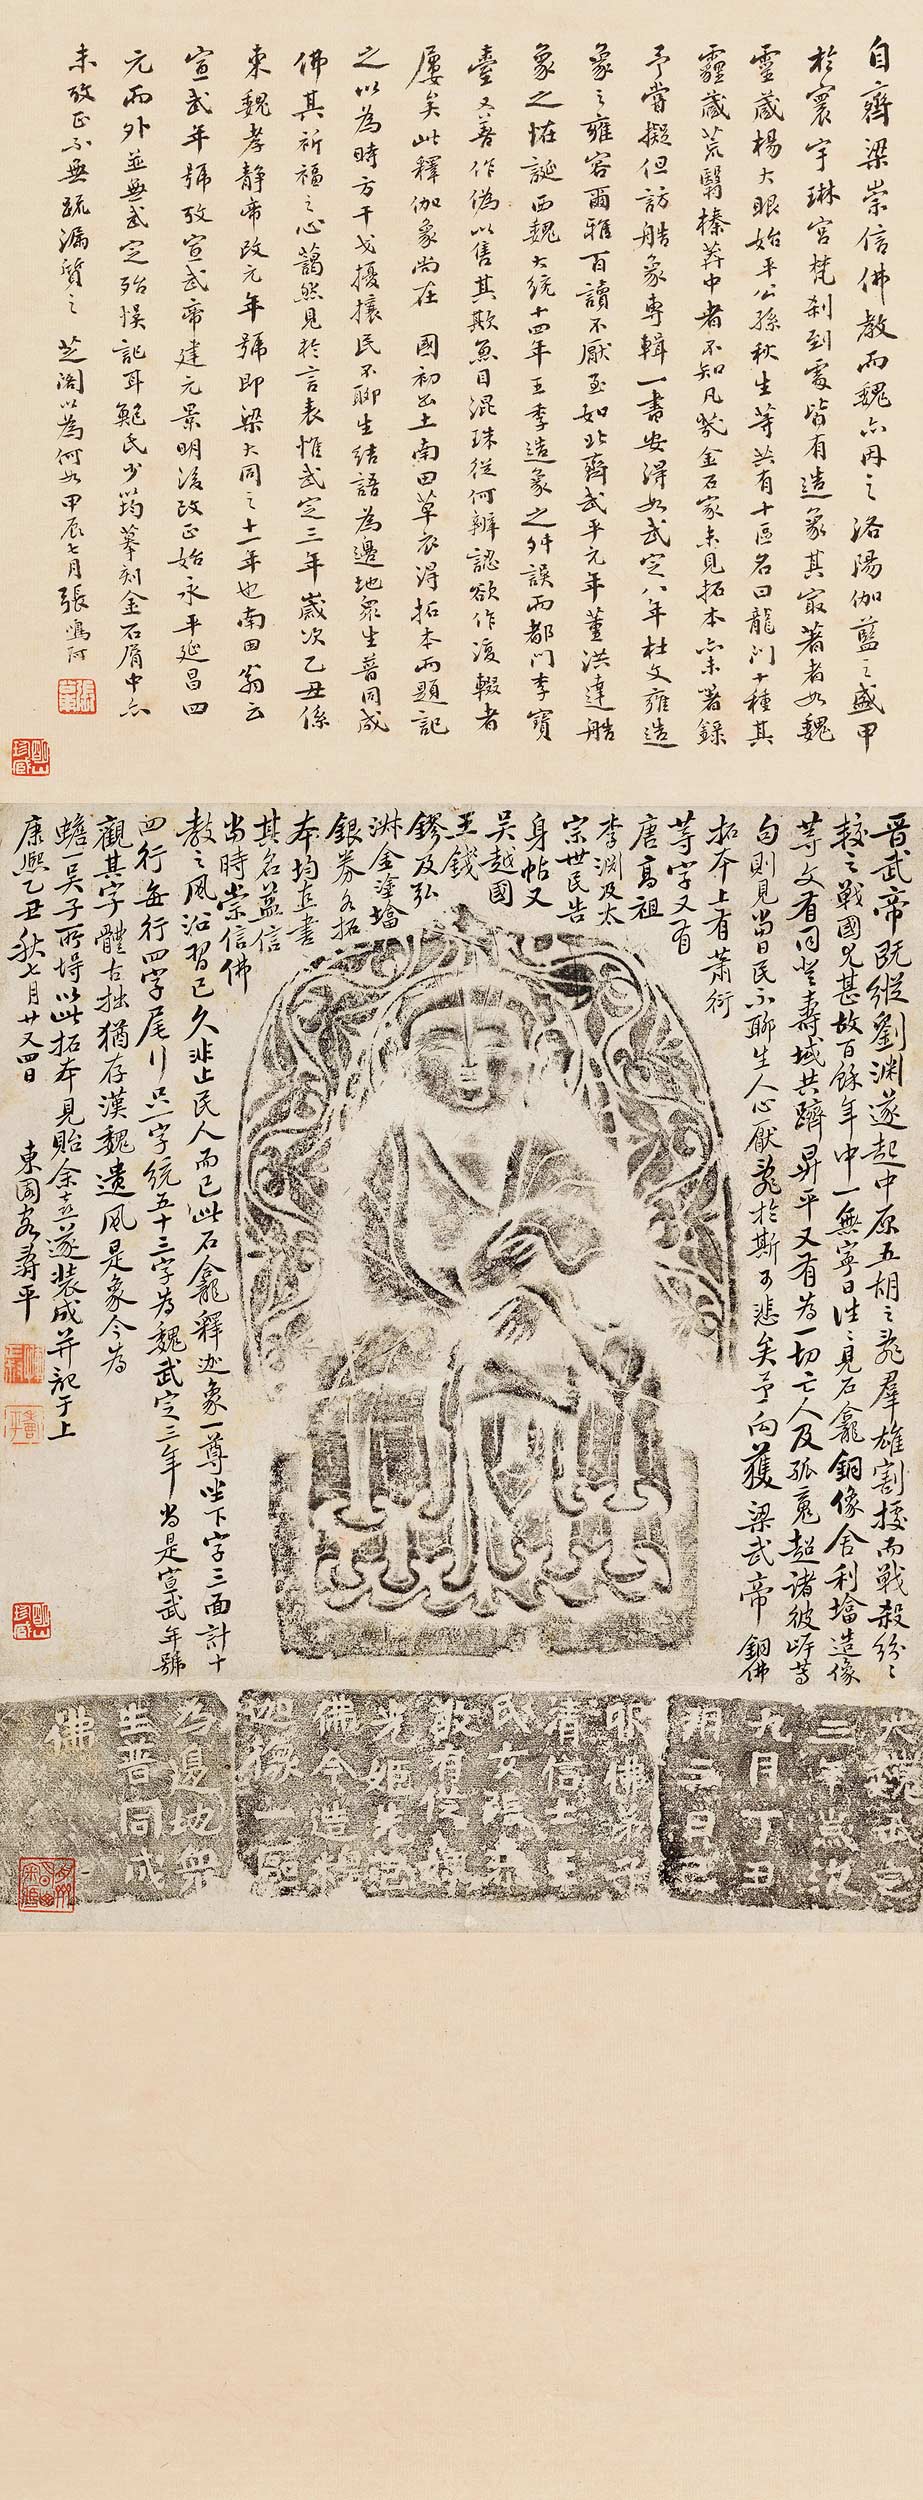 自齊梁崇信佛教而魏亦因之洛陽伽藍之盛甲
於寰宇琳宮梵剎到處皆有造象其最著者如魏
靈藏楊大眼始平公孫秋生等共有十區名曰龍門十種其
薶藏荒翳榛莽中者不知凡幾金石家未見拓本亦未著錄
予嘗擬但訪船象專輯一書安得如武定八年杜文雍造
象之雍容爾雅百讀不厭至如北齊武平元年董洪達船
象之恠誕西魏大統十四年王季造象之舛誤而都門李寶
臺又善作偽以售其欺魚目混珠從何辨認欲作復輟者
屢矣此釋伽象尚在國初出土南田草衣得拓本而題記
之以為時方干戈擾攘民不聊生結語為邊地眾生普同成
佛其祈福之心藹然見於言表惟武定三年歲次乙丑係
東魏孝靜帝改元年號即梁大同之十一年也南田翁云
宣武年號攷宣武帝建元景明後改正始永平延昌四
元而外並無武定殆悞記耳鮑氏少筠摹刻金石屑中亦
未攷正不無疏漏質之芝閣以為何如甲辰七月張鳴珂
晋武帝既縱劉渊遂起中原五胡之亂羣雄割據而戰殺紛紛
較之戰國尤甚故百餘年中一無寧日往往見石龕銅像舍利墖造像
等文有同登壽域共躋昇平又有為一切亡人及孤魂超諸彼岸等
句則見當日民不聊生人心厭亂於斯可悲矣予向獲梁武帝銅佛
拓本上有蕭衍
等字又有
唐高祖
李渊及太
宗世民告
身帖又
吳越國
王錢
鏐及弘
淋金塗墖
銀券各拓
本均直書
其名益信
當時崇信佛
教之風沿習已久非止民人而已此石龕釋迦象一尊坐下字三面計十
四行每行四字尾行只一字統五十三字為魏武定三年當是宣武年號
觀其字體古拙猶存漢魏遺風是象今為
蟾一吳子所得以此拓本見貽余遂裝成并記于上
康熙乙丑秋七月廿又四日 東園客壽平
大魏武定
三年歲次
九月丁丑
朔三日己
卯佛弟子
清信士王
氏女
敬
佛今造釋
迦像一區
為邊地眾
生普同成
佛